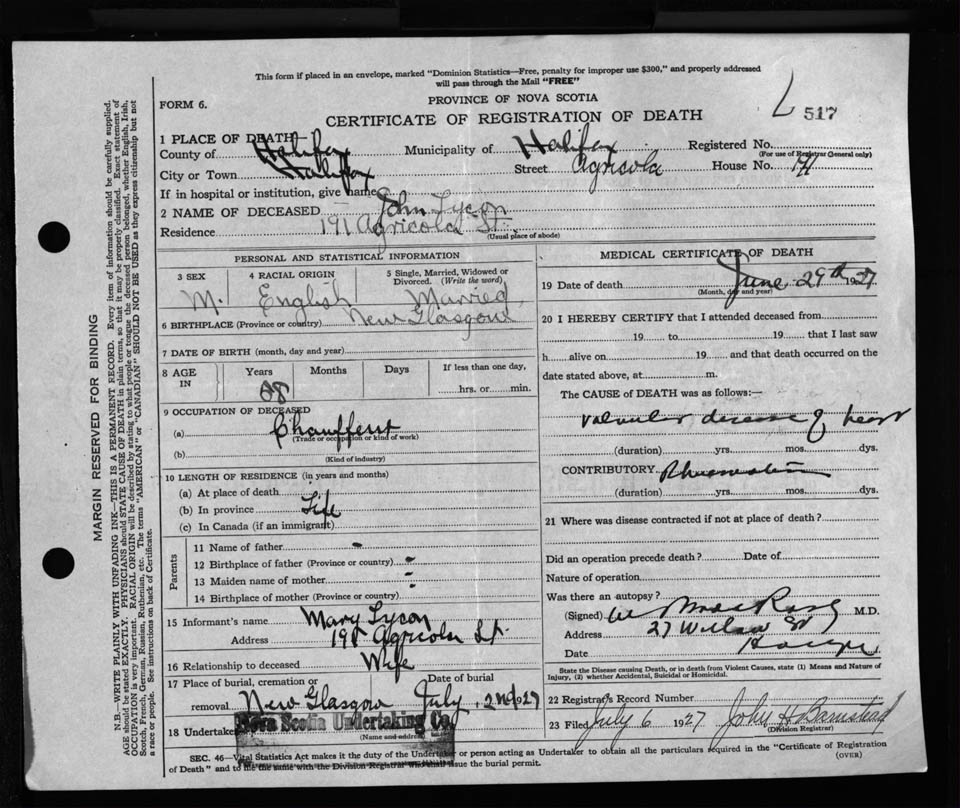 This form if placed in an envelope, marked "Dominion Statistics—Free, penalty for improper use $300," and properly addressed
will pass through the Mail "FREE"
PROVINCE OF NOVA SCOTIA
FORM 6.
CERTIFICATE OF REGISTRATION OF DEATH
L 517
1 PLACE OF DEATH—
County of Halifax Municipality of Halifax Registered No.
(For use of Registrar General only)
City or Town Halifax Street Agricola House No.
If in hospital or institution, give name
2 NAME OF DECEASED John Lycon
Residence 191 Agricola St.
(Usual place of abode)
PERSONAL AND STATISTICAL INFORMATION
3 SEX 4 RACIAL ORIGIN 5 Single, Married, Widowed or Divorced. (Write the word)
M. English Married
6 BIRTHPLACE (Province or country) New Glasgow
7 DATE OF BIRTH (month, day and year)
8 AGE IN Years Months Days If less than one day,
hrs. or min.
9 OCCUPATION OF DECEASED
(a) Chauffeur
(Trade or occupation or kind of work)
(b)
(Kind of industry)
10 LENGTH OF RESIDENCE (in years and months)
(a) At place of death
(b) In province Life
(c) In Canada (if an immigrant)
Parents
11 Name of father -
12 Birthplace of father (Province or country) -
13 Maiden name of mother -
14 Birthplace of mother (Province or country) -
15 Informant's name Mary Lycon
Address Agricola St.
16 Relationship to deceased Wife
17 Place of burial, cremation or Date of burial
removal New Glasgow July 2nd 1927
18 Undertaker Nova Scotia Undertaking Co.
(Name and address)
MEDICAL CERTIFICATE OF DEATH
19 Date of death June 29th 1927
(Month, day and year)
20 I HEREBY CERTIFY that I attended deceased from
19 to 19 that I last saw
h alive on 19 and that death occurred on the
date stated above, at m.
The CAUSE of DEATH was as follows:
valvular disease of heart
(duration) yrs. mos. dys.
CONTRIBUTORY Rheumatism
(duration) yrs. mos. dys.
21 Where was disease contracted if not at place of death?
Did an operation precede death? Date of
Nature of operation
Was there an autopsy?
(Signed) M.D.
Address 27 Willow St
Halifax
State the Disease causing Death, or in death from Violent Causes, state (1) Means and Nature of
Injury, (2) whether Accidental, Suicidal or Homicidal.
22 Registrar's Record Number
23 Filed July 6 1927 John H Barnstead
(Division Registrar)
SEC. 46—Vital Statistics Act makes it the duty of the Undertaker or person acting as Undertaker to obtain all the particulars required in the "Certificate of Registration
of Death" and to file the same with the Division Registrar who shall issue the burial permit.
(OVER)
MARGIN RESERVED FOR BINDING
N.B.—WRITE PLAINLY WITH UNFADING INK—THIS IS A PERMANENT RECORD. Every item of information should be carefully supplied.
AGE should be stated EXACTLY. PHYSICIANS should STATE CAUSE OF DEATH in plain terms, so that it may be properly classified. Exact statement of
OCCUPATION is very important. RACIAL ORIGIN will be described by stating to what people or tongue the deceased person belonged, whether English, Irish,
Scotch, French, German, Russian, Ruthenian, etc. The terms "AMERICAN" or "CANADIAN" SHOULD NOT BE USED as they express citizenship but not
a race or people. See instructions on back of Certificate.